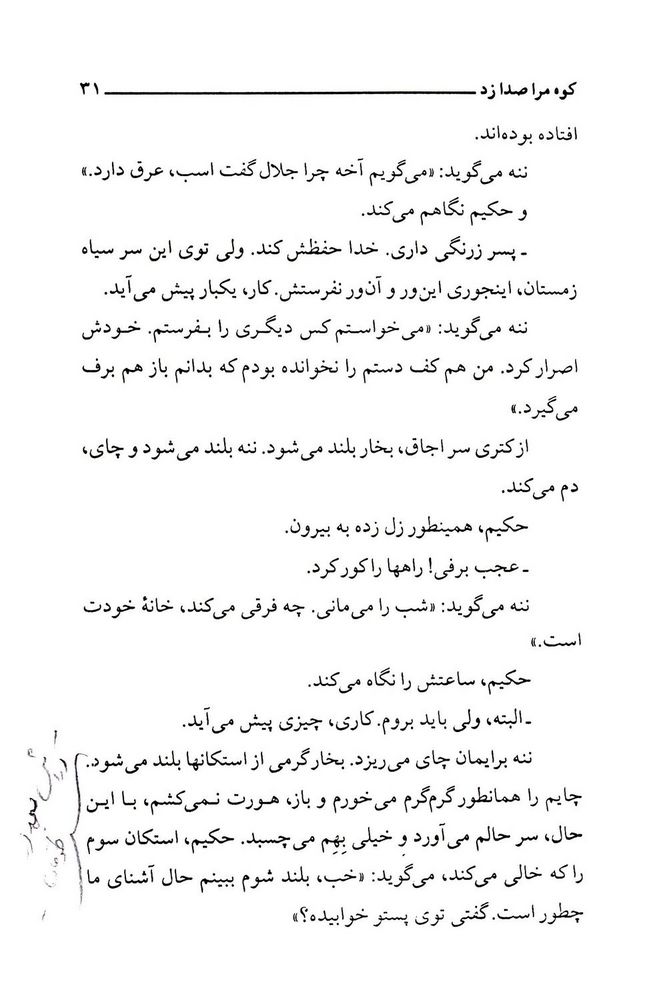 کوه مرا صدا زد ۳۱
افتاده بوده‌اند.
ننه می‌گوید: «می‌گویم آخه چرا جلال گفت اسب، عرق دارد.»
و حکیم نگاهم می‌کند.
ـ پسر زرنگی داری. خدا حفظش کند. ولی توی این سر سیاه
زمستان، اینجوری این‌ور و آن‌ور نفرستش. کار، یکبار پیش می‌آید.
ننه می‌گوید: «می‌خواستم کس دیگری را بفرستم. خودش
اصرار کرد. من هم کف دستم را نخوانده بودم که بدانم باز هم برف
می‌گیرد.»
از کتری سر اجاق، بخار بلند می‌شود. ننه بلند می‌شود و چای،
دم می‌کند.
حکیم، همینطور زل زده به بیرون.
ـ عجب برفی! راهها را کور کرد.
ننه می‌گوید: «شب را می‌مانی. چه فرقی می‌کند، خانهٔ خودت
است.»
حکیم، ساعتش را نگاه می‌کند.
ـ البته، ولی باید بروم. کاری، چیزی پیش می‌آید.
ننه برایمان چای می‌ریزد. بخار گرمی از استکانها بلند می‌شود.
چایم را همانطور گرم‌گرم می‌خورم و باز، هورت نمی‌کشم، با این
حال، سر حالم می‌آورد و خیلی بِهِم می‌چسبد. حکیم، استکان سوم
را که خالی می‌کند، می‌گوید: «خب، بلند شوم ببینم حال آشنای ما
چطور است. گفتی توی پستو خوابیده؟»